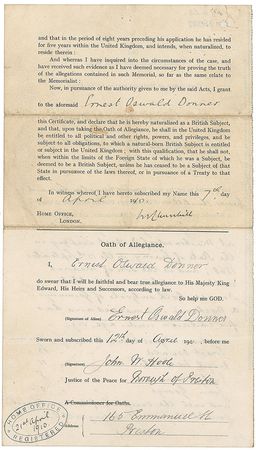 and that in the period of eight years preceding his application he has resided
for five years within the United Kingdom, and intends, when naturalized, to
reside therein:
And whereas I have inquired into the circumstances of the case, and
have received such evidence as I have deemed necessary for proving the truth
of the allegations contained in such Memorial, so far as the same relate to the
Memorialist:
Now, in pursuance of the authority given to me by the said Acts, I grant
to the aforesaid Ernest Oswald Donner
this Certificate, and declare that he is hereby naturalized as a British Subject,
and that, upon taking the Oath of Allegiance, he shall in the United Kingdom
be entitled to all political and other rights, powers, and privileges, and be
subject to all obligations, to which a natural-born British Subject is entitled or
subject in the United Kingdom; with this qualification, that he shall not,
when within the limits of the Foreign State of which he was a Subject, be
deemed to be a British Subject, unless he has ceased to be a Subject of that
State in pursuance of the laws thereof, or in pursuance of a Treaty to that
effect.
In witness whereof I have hereto subscribed my Name this 7th day
of April 1910.
HOME OFFICE,
LONDON.
Oath of Allegiance.
I, Ernest Oswald Donner
do swear that I will be faithful and bear true allegiance to His Majesty King
Edward, His Heirs and Successors, according to law.
So help me GOD.
(Signature of Alien) Ernest Oswald Donner
Sworn and subscribed this 12th day of April 190 , before me
(Signature) John W.
Justice of the Peace for Borough of Preston
A Commissioner for Oaths.
165 Emmanuel St
Preston
HOME OFFICE
21st April
1910
REGISTERED